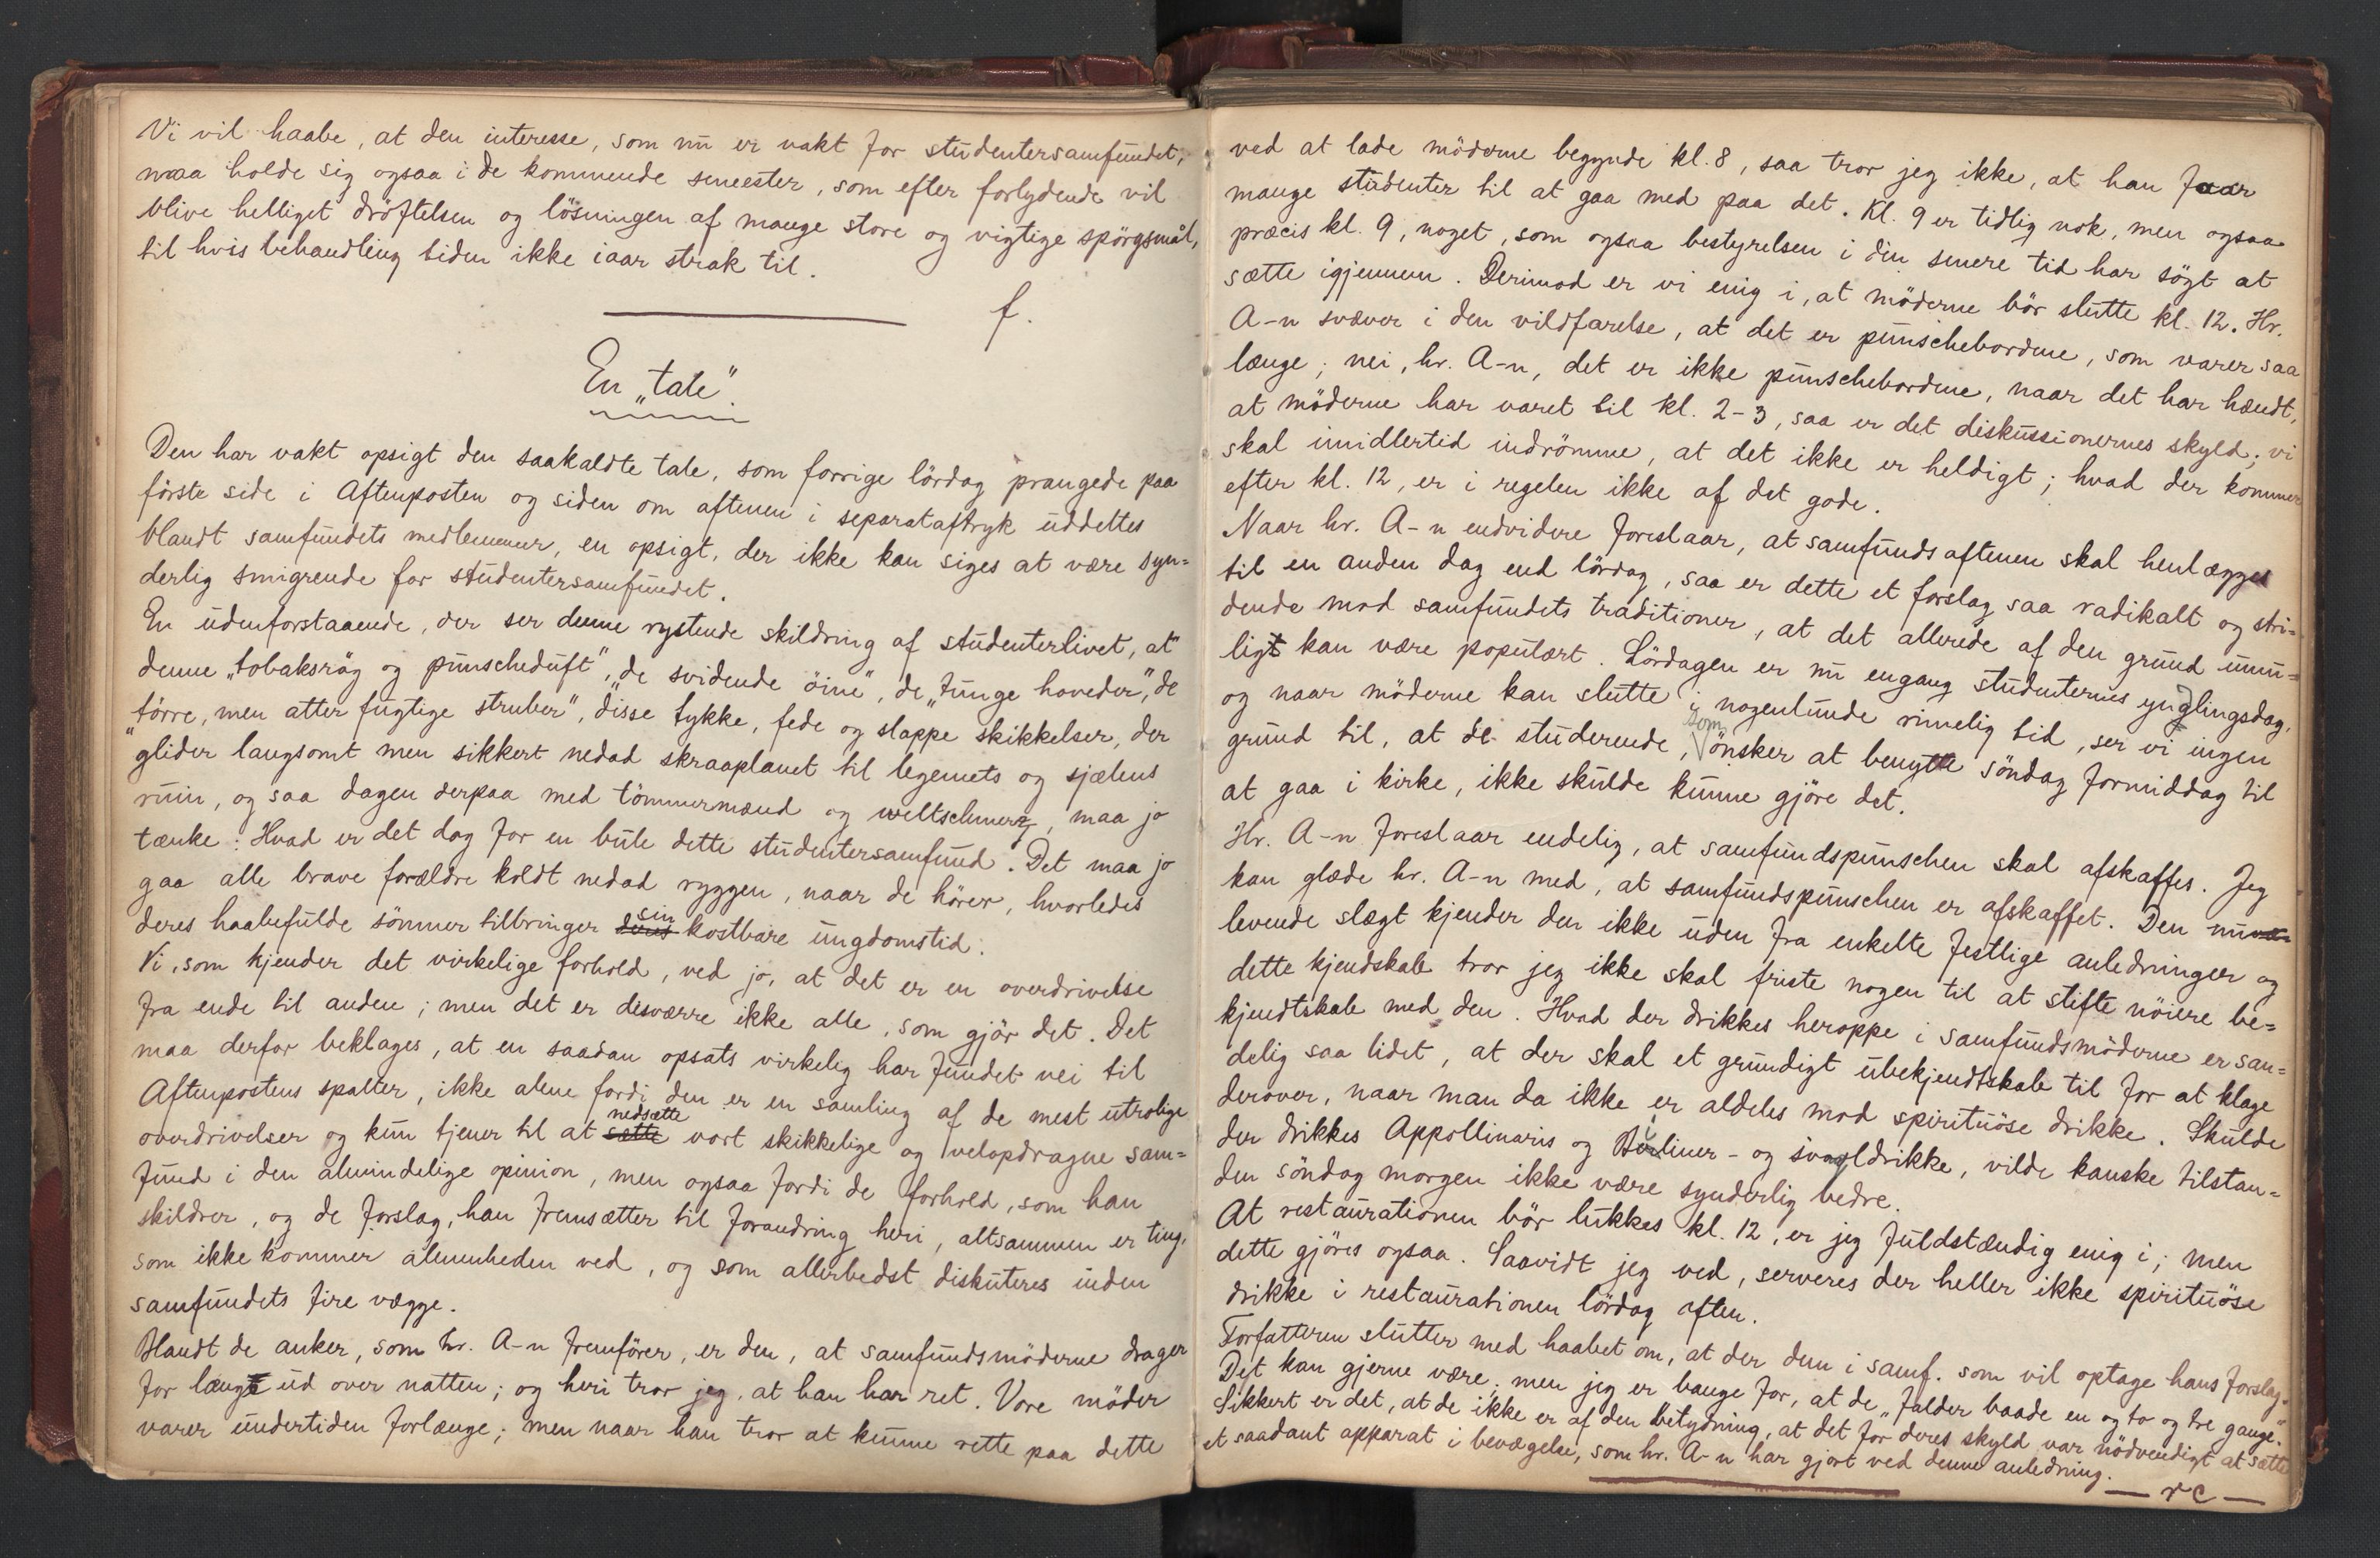 Vi vil haabe, at den interesse, som nu er vakt for studentersamfundet,
maa holde sig ogsaa i de kommende semester, som efter forlydende vil
blive helliget dröftelsen og lösningen af mange store og vigtige spörgsmål,
til hvis behandling tiden ikke iaar strak til.
f.
En „tale".
Den har vakt opsigt den saakaldte tale, som forrige lördag prangede paa
förste side i Aftenposten og siden om aftenen i separataftryk uddeltes
blandt samfundets medlemmer, en opsigt, der ikke kan siges at være syn=
derlig smigrende for studentersamfundet.
En udenforstaaende, der ser denne rystende skildring af studenterlivet, at
denne „tobaksrög og punscheduft", „de svidende öine", de „tunge hoveder", „de
törre, men atter fugtige struber", disse tykke, fede og slappe skikkelser, der
„glider langsomt men sikkert nedad skraaplanet til legemets og sjælens
ruin, og saa dagen derpaa med tömmermænd og weltschmerz, maa jo
tænke: Hvad er det dog for en bule dette studentersamfund. Det maa jo
gaa alle brave forældre koldt nedad ryggen, naar de hörer, hvorledes
deres haabefulde sönner tilbringer deres sin kostbare ungdomstid.
Vi, som kjender det virkelige forhold, ved jo, at det er en overdrivelse
fra ende til anden; men det er desværre ikke alle, som gjör det. Det
maa derfor beklages, at en saadan opsats virkelig har fundet vei til
Aftenpostens spalter, ikke alene fordi den er en samling af de mest utrolige
overdrivelser og kun tjener til at sætte nedsætte vort skikkelige og velopdragne sam=
fund i den almindelige opinion, men ogsaa fordi de forhold, som han
skildrer, og de forslag, han fremsætter til forandring heri, altsammen er ting,
som ikke kommer almenheden ved, og som allerbedst diskuteres inden
samfundets fire vægge.
Blandt de anker, som hr. A-n fremförer, er den, at samfundsmöderne drager
for langt ud over natten; og heri tror jeg, at han har ret. Vore möder
varer undertiden forlænge; men naar han tror at kunne rette paa dette
ved at lade möderne begynde kl. 8, saa tror jeg ikke, at han faar
mange studenter til at gaa med paa det. Kl. 9 er tidlig nok, men ogsaa
præcis kl. 9, noget, som ogsaa bestyrelsen i den senere tid har sögt at
sætte igjennem. Derimod er vi enig i, at möderne bör slutte kl. 12. Hr.
A-n svæver i den vildfarelse, at det er punschebordene, som varer saa
længe; nei, hr. A-n, det er ikke punschebordene, naar det har hændt,
at möderne har varet til kl. 2-3, saa er det diskussionernes skyld; vi
skal imidlertid indrömme, at det ikke er heldigt; hvad der kommer
efter kl. 12, er i regelen ikke af det gode.
Naar hr. A-n endvidere foreslaar, at samfundsaftenen skal henlægges
til en anden dag end lördag, saa er dette et forslag saa radikalt og stri=
dende mod samfundets traditioner, at det allerede af den grund umu=
ligt kan være populært. Lördagen er nu engang studenternes ynglingsdag,
og naar möderne kan slutte i nogenlunde rimelig tid, ser vi ingen
grund til, at de studerende, som önsker at benytte söndag formiddag til
at gaa i kirke, ikke skulde kunne gjöre det.
Hr. A-n foreslaar endelig, at samfundspunschen skal afskaffes. Jeg
kan glæde hr. A-n med, at samfundspunschen er afskaffet. Den nu
levende slægt kjender den ikke uden fra enkelte festlige anledninger og
dette kjendskab tror jeg ikke skal friste nogen til at stifte nöiere be=
kjendtskab med den. Hvad der drikkes heroppe i samfundsmöderne er san=
delig saa lidet, at der skal et grundigt ubekjendtskab til for at klage
derover, naar man da ikke er aldeles mod spirituöse drikke. Skulde
der drikkes Appollinaris og Berliner- og svagldrikke, vilde kanske tilstan=
den söndag morgen ikke være synderlig bedre.
At restaurationen bör lukkes kl. 12, er jeg fuldstændig enig i; men
dette gjöres ogsaa. Saavidt jeg ved, serveres der heller ikke spirituöse
drikke i restaurationen lördag aften.
Forfatteren slutter med haabet om, at der den i samf. som vil optage hans forslag.
Det kan gjerne være; men jeg er bange for, at de „falder baade en og to og tre gange."
Sikkert er det, at de ikke er af den betydning, at det for deres skyld var nödvendigt at sætte
et saadant apparat i bevægelse, som hr. A-n har gjort ved denne anledning.
— rc —